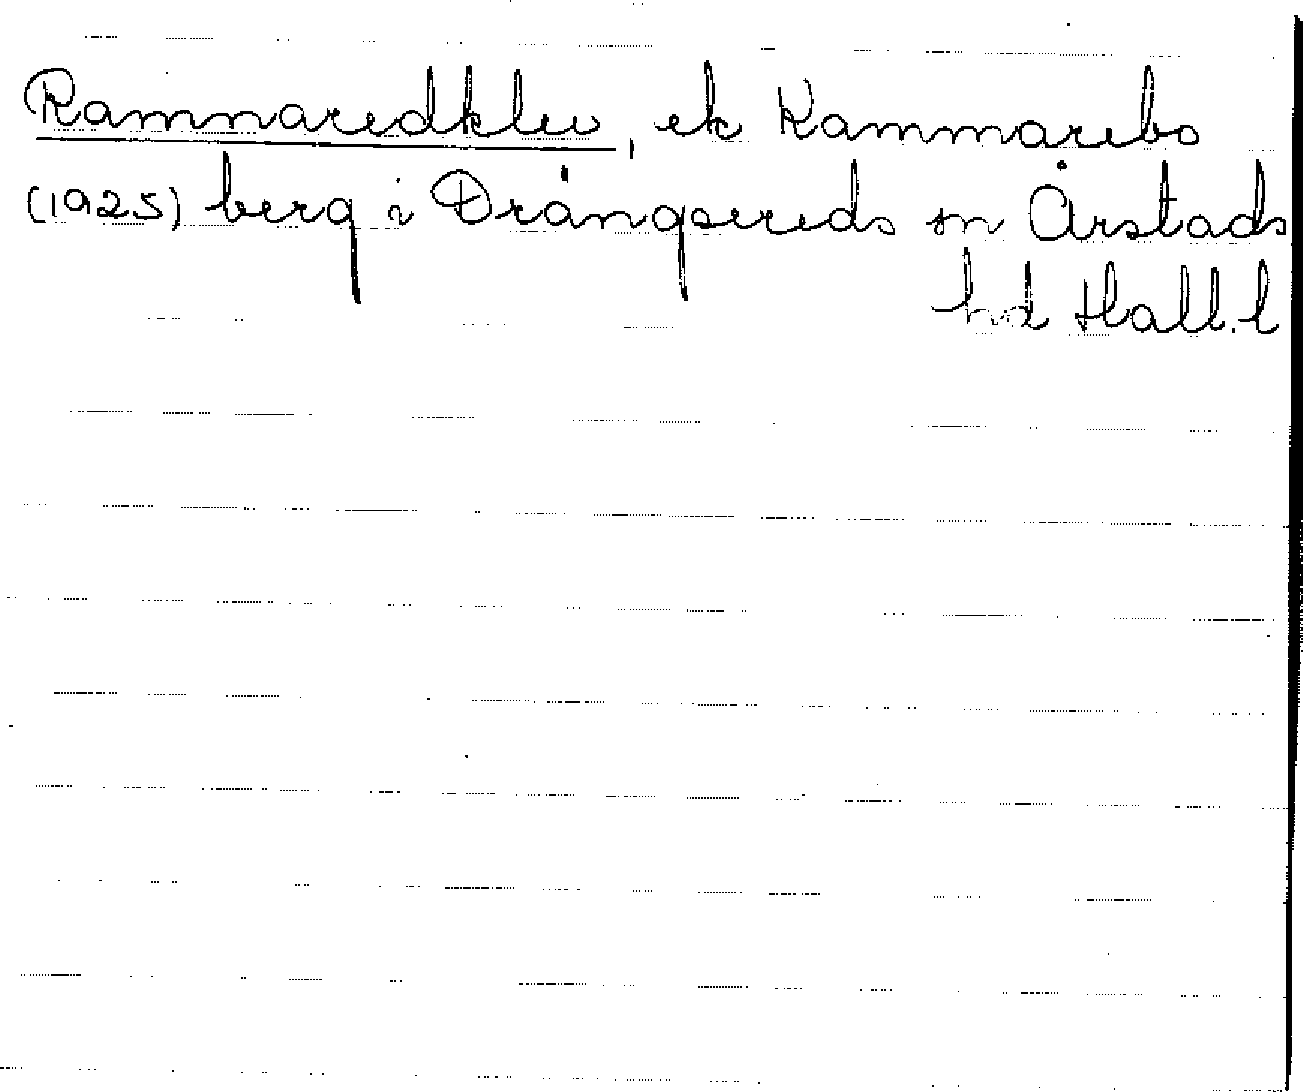 Ramnaredklev, ek Kammarebo
(1925) berg i Drängsereds sn Årstads
hd Hall. l